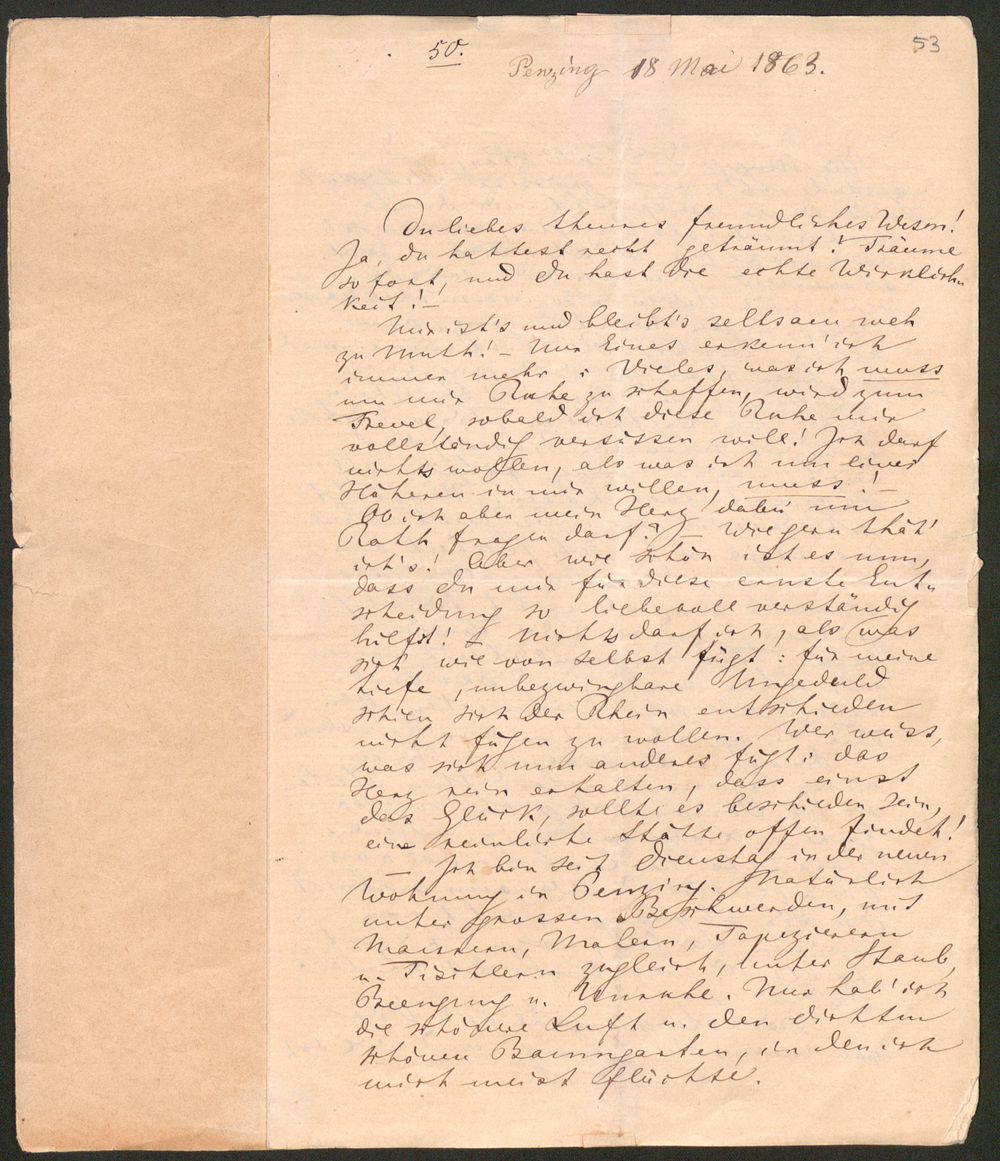 50.
53
Penzing 18 Mai 1863.
Du liebes theures freundliches Wesen!
Ja, du hattest recht geträumt! Träume
so fort, und du hast die echte Wirklich-
keit! —
Mir ist's und bleibt's seltsam weh
zu Muth! — Nur Eines erkenn' ich
immer mehr: Vieles, was ich muss
um mir Ruhe zu schaffen, wird zum
Frevel, sobald ich diese Ruhe mir
vollständig versüssen will! Ich darf
nichts wollen, als was ich um eines
Höheren in mir willen, muss! —
Ob ich aber mein Herz dabei um
Rath fragen darf? — Wie gern thät'
ich's! Aber wie schön ist es nun,
dass du mir für diese ernste Ent-
scheidung so liebevoll verständig
hilfst! — Nichts darf ich, als was
sich wie von selbst fügt: für meine
tiefe, unbezwingbare Ungeduld
schien sich der Rhein entschieden
nicht fügen zu wollen. Wer weiss,
was sich nun anderes fügt: das
Herz rein erhalten, dass einst
das Glück, sollte es beschieden sein,
eine reinliche Stätte offen findet!
— Ich bin seit Dienstag in der neuen
Wohnung in Penzing. Natürlich
unter grossen Beschwerden, mit
Maurern, Malern, Tapezierern
u. Tischlern zugleich, unter Staub,
Beengung u. Unruhe. Nur hab' ich
die schönere Luft u. den dichten
schönen Baumgarten, in den ich
mich meist flüchte.